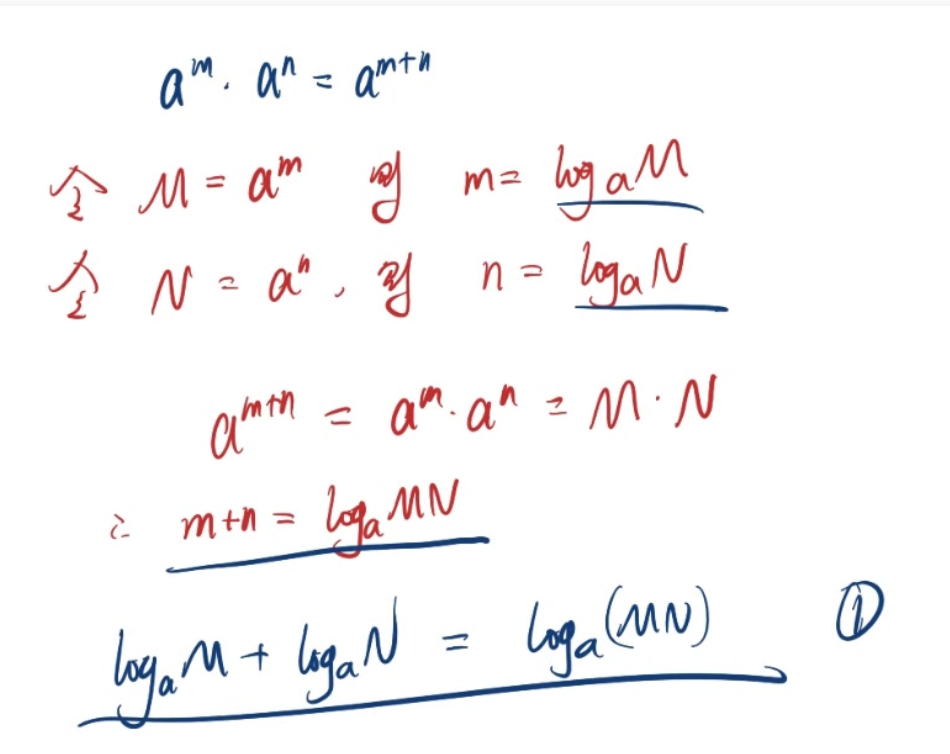 aᵐ · aⁿ = aᵐ⁺ⁿ
令 M = aᵐ 则 m = logₐM
令 N = aⁿ, 则 n = logₐN
aᵐ⁺ⁿ = aᵐ · aⁿ = M · N
∴ m+n = logₐMN
logₐM + logₐN = logₐ(MN) ①